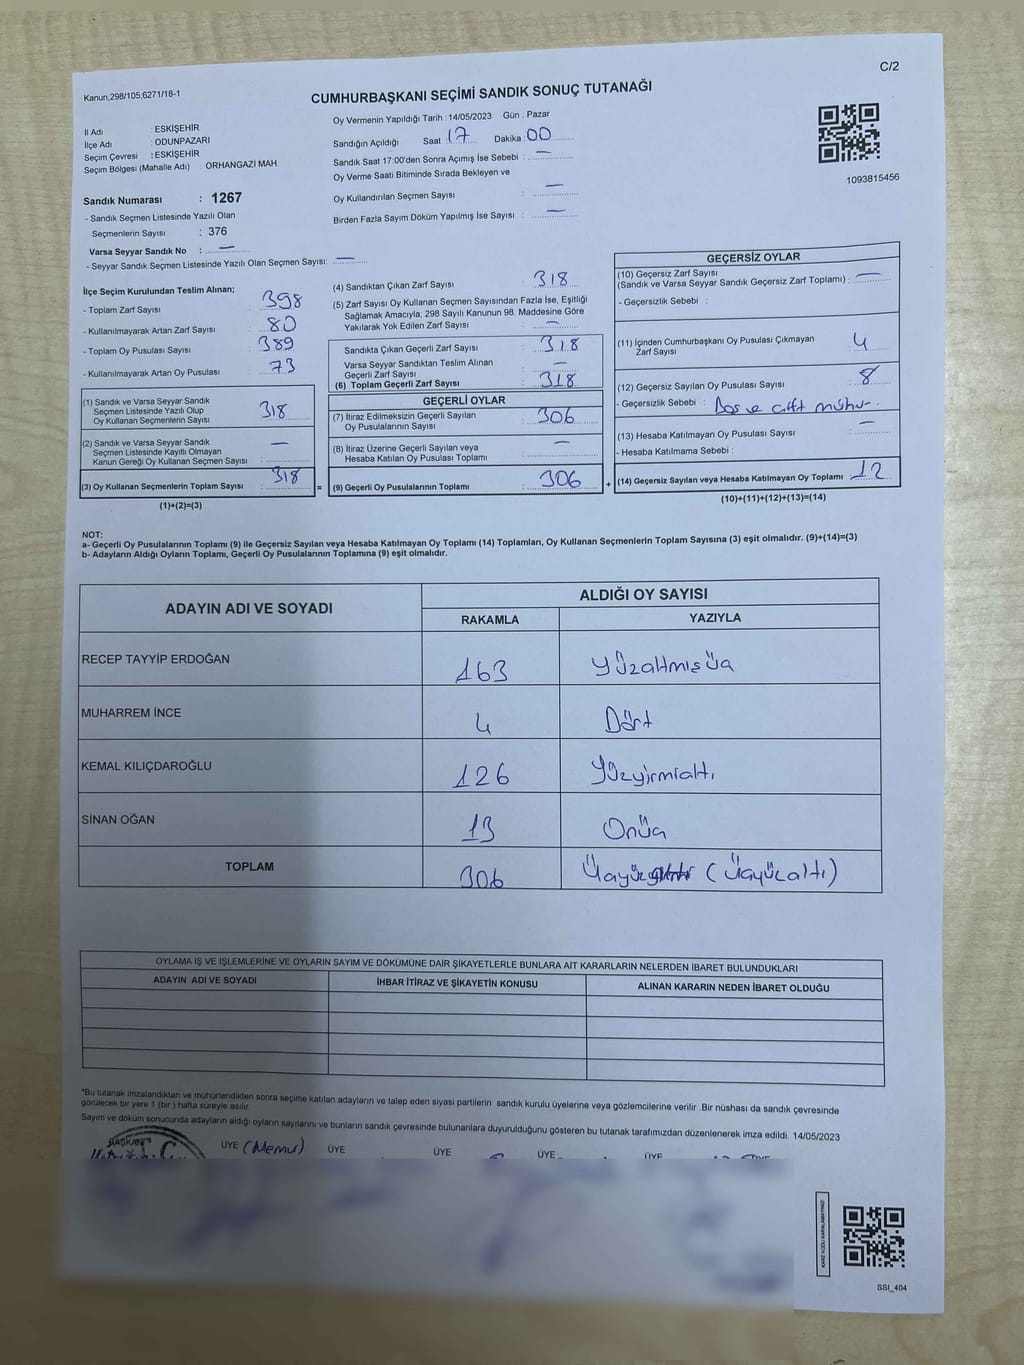 C/2
Kanun,298/105;6271/18-1
CUMHURBAŞKANI SEÇİMİ SANDIK SONUÇ TUTANAĞI
İl Adı : ESKİŞEHİR
İlçe Adı : ODUNPAZARI
Seçim Çevresi : ESKİŞEHİR
Seçim Bölgesi (Mahalle Adı) : ORHANGAZİ MAH.
Sandık Numarası : 1267
- Sandık Seçmen Listesinde Yazılı Olan
Seçmenlerin Sayısı : 376
Varsa Seyyar Sandık No : —
- Seyyar Sandık Seçmen Listesinde Yazılı Olan Seçmen Sayısı: —
Oy Vermenin Yapıldığı Tarih : 14/05/2023 Gün : Pazar
Sandığın Açıldığı Saat 17 Dakika : 00
Sandık Saat 17:00'den Sonra Açımış İse Sebebi : —
Oy Verme Saati Bitiminde Sırada Bekleyen ve
Oy Kullandırılan Seçmen Sayısı : —
Birden Fazla Sayım Döküm Yapılmış İse Sayısı : —
1093815456
İlçe Seçim Kurulundan Teslim Alınan;
- Toplam Zarf Sayısı : 398
- Kullanılmayarak Artan Zarf Sayısı : 80
- Toplam Oy Pusulası Sayısı : 389
- Kullanılmayarak Artan Oy Pusulası : 73
(1) Sandık ve Varsa Seyyar Sandık
Seçmen Listesinde Yazılı Olup
Oy Kullanan Seçmenlerin Sayısı : 318
(2) Sandık ve Varsa Seyyar Sandık
Seçmen Listesinde Kayıtlı Olmayan
Kanun Gereği Oy Kullanan Seçmen Sayısı : —
(3) Oy Kullanan Seçmenlerin Toplam Sayısı : 318
(1)+(2)=(3)
(4) Sandıktan Çıkan Zarf Sayısı : 318
(5) Zarf Sayısı Oy Kullanan Seçmen Sayısından Fazla İse, Eşitliği
Sağlamak Amacıyla; 298 Sayılı Kanunun 98. Maddesine Göre
Yakılarak Yok Edilen Zarf Sayısı : —
Sandıkta Çıkan Geçerli Zarf Sayısı : 318
Varsa Seyyar Sandıktan Teslim Alınan
Geçerli Zarf Sayısı : —
(6) Toplam Geçerli Zarf Sayısı : 318
GEÇERLİ OYLAR
(7) İtiraz Edilmeksizin Geçerli Sayılan
Oy Pusulalarının Sayısı : 306
(8) İtiraz Üzerine Geçerli Sayılan veya
Hesaba Katılan Oy Pusulası Toplamı : —
= (9) Geçerli Oy Pusulalarının Toplamı : 306
GEÇERSİZ OYLAR
(10) Geçersiz Zarf Sayısı
(Sandık ve Varsa Seyyar Sandık Geçersiz Zarf Toplamı) : —
- Geçersizlik Sebebi :
(11) İçinden Cumhurbaşkanı Oy Pusulası Çıkmayan
Zarf Sayısı : 4
(12) Geçersiz Sayılan Oy Pusulası Sayısı : 8
- Geçersizlik Sebebi : Boş ve çift mühür.
(13) Hesaba Katılmayan Oy Pusulası Sayısı : —
- Hesaba Katılmama Sebebi :
+ (14) Geçersiz Sayılan veya Hesaba Katılmayan Oy Toplamı 12
(10)+(11)+(12)+(13)=(14)
NOT:
a- Geçerli Oy Pusulalarının Toplamı (9) ile Geçersiz Sayılan veya Hesaba Katılmayan Oy Toplamı (14) Toplamları, Oy Kullanan Seçmenlerin Toplam Sayısına (3) eşit olmalıdır. (9)+(14)=(3)
b- Adayların Aldığı Oyların Toplamı, Geçerli Oy Pusulalarının Toplamına (9) eşit olmalıdır.
ADAYIN ADI VE SOYADI ALDIĞI OY SAYISI
RAKAMLA YAZIYLA
RECEP TAYYİP ERDOĞAN 163 Yüzaltmışüç
MUHARREM İNCE 4 Dört
KEMAL KILIÇDAROĞLU 126 Yüzyirmialtı
SİNAN OĞAN 13 Onüç
TOPLAM 306 Üçyüz (Üçyüzaltı)
OYLAMA İŞ VE İŞLEMLERİNE VE OYLARIN SAYIM VE DÖKÜMÜNE DAİR ŞİKAYETLERLE BUNLARA AİT KARARLARIN NELERDEN İBARET BULUNDUKLARI
ADAYIN ADI VE SOYADI İHBAR İTİRAZ VE ŞİKAYETİN KONUSU ALINAN KARARIN NEDEN İBARET OLDUĞU
*Bu tutanak imzalandıktan ve mühürlendikten sonra seçime katılan adayların ve talep eden siyasi partilerin sandık kurulu üyelerine veya gözlemcilerine verilir .Bir nüshası da sandık çevresinde
görülecek bir yere 1 (bir ) hafta süreyle asılır.
Sayım ve döküm sonucunda adayların aldığı oyların sayılarını ve bunların sandık çevresinde bulunanlara duyurulduğunu gösteren bu tutanak tarafımızdan düzenlenerek imza edildi. 14/05/2023
BAŞKAN ÜYE (Memu) ÜYE ÜYE ÜYE ÜYE ÜYE
KARE KODU KARALAMAYINIZ!
SSI_404